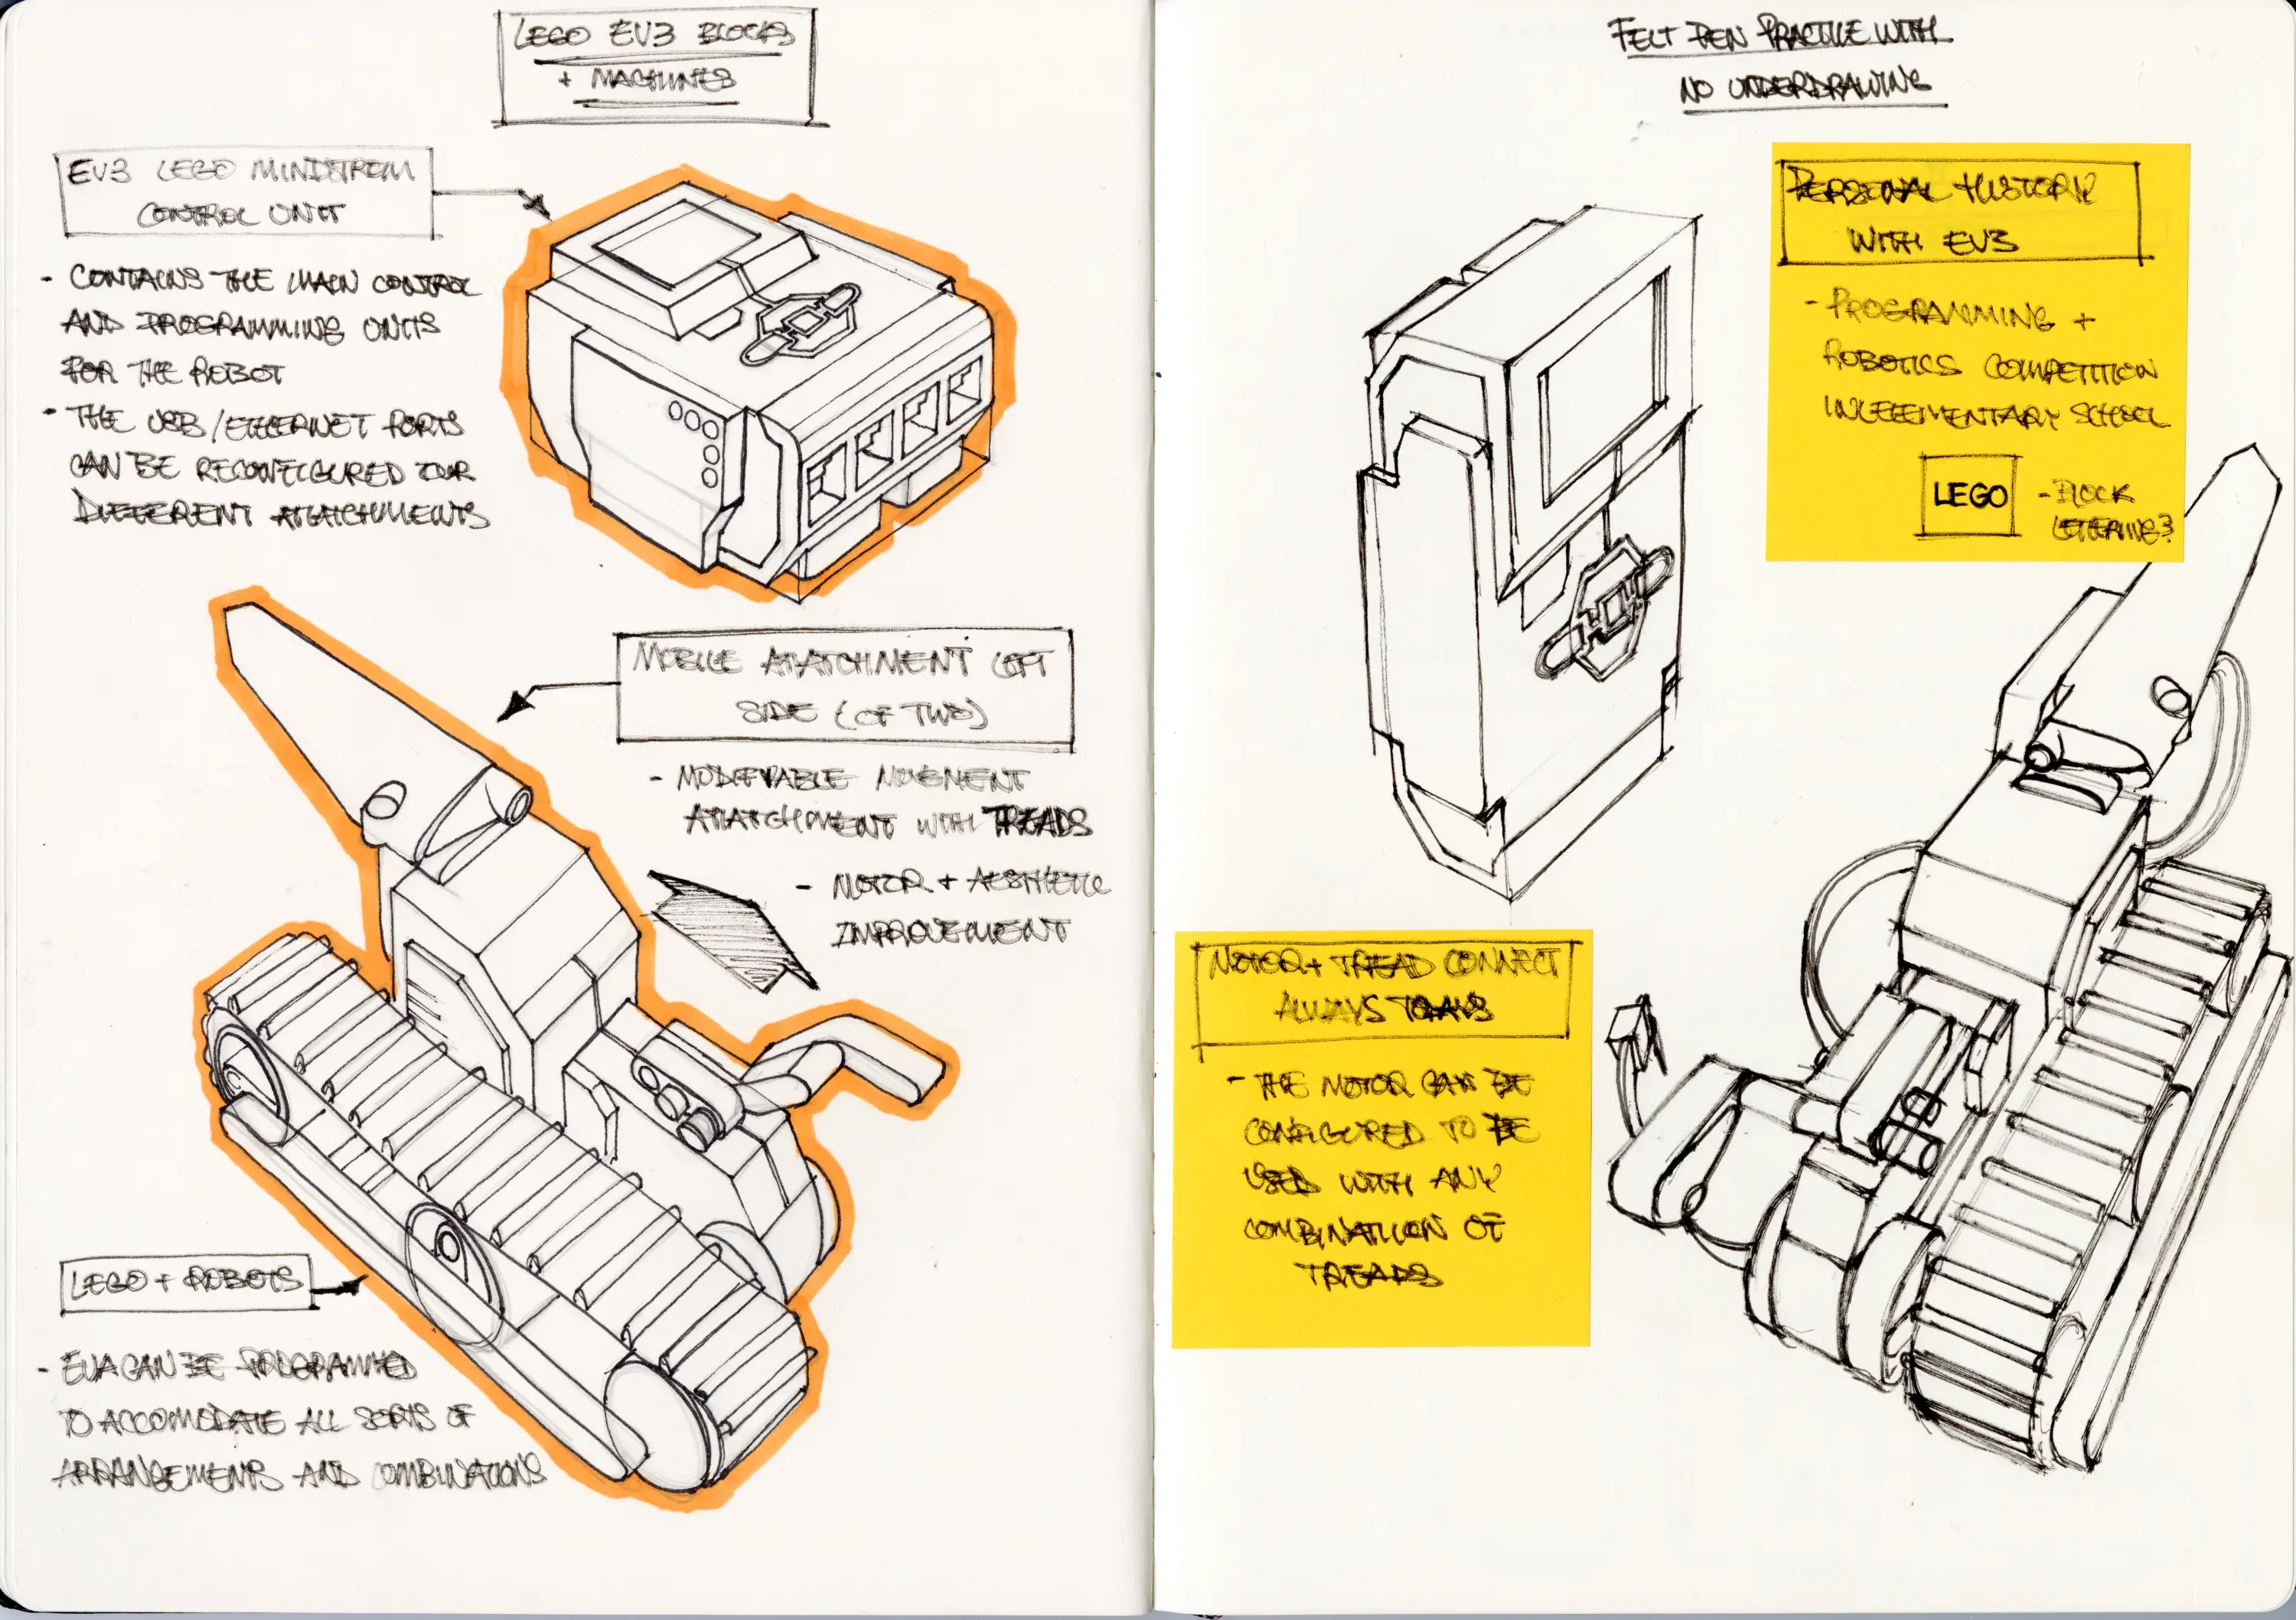 LEGO EV3 BLOCKS
+ MACHINES
EV3 LEGO MINDSTREM
CONTROL UNIT
- CONTAINS THE MAIN CONTROL
AND PROGRAMMING UNITS
FOR THE ROBOT
- THE USB/ETHERNET PORTS
CAN BE RECONFIGURED FOR
DIFFERENT ATATCHMENTS
MOBILE ATATCHMENT LEFT
SIDE (OF TWO)
- MODIFYABLE MOVEMENT
ATATCHMENT WITH TREADS
- MOTOR + AESTHETIC
IMPROVEMENT
LEGO + ROBOTS
- CAN BE PROGRAMMED
TO ACCOMODATE ALL SORTS OF
ARRANGEMENTS AND COMBINATIONS
FELT PEN PRACTICE WITH
NO UNDERDRAWING
PERSONAL HISTORY
WITH EV3
- PROGRAMMING +
ROBOTICS COMPETITION
IN ELEMENTARY SCHOOL
LEGO
- BLOCK
LETTERING?
MOTOR + TREAD CONNECT
ALWAYS
- THE MOTOR CAN BE
CONFIGURED TO BE
USED WITH ANY
COMBINATIION OF
TREADS